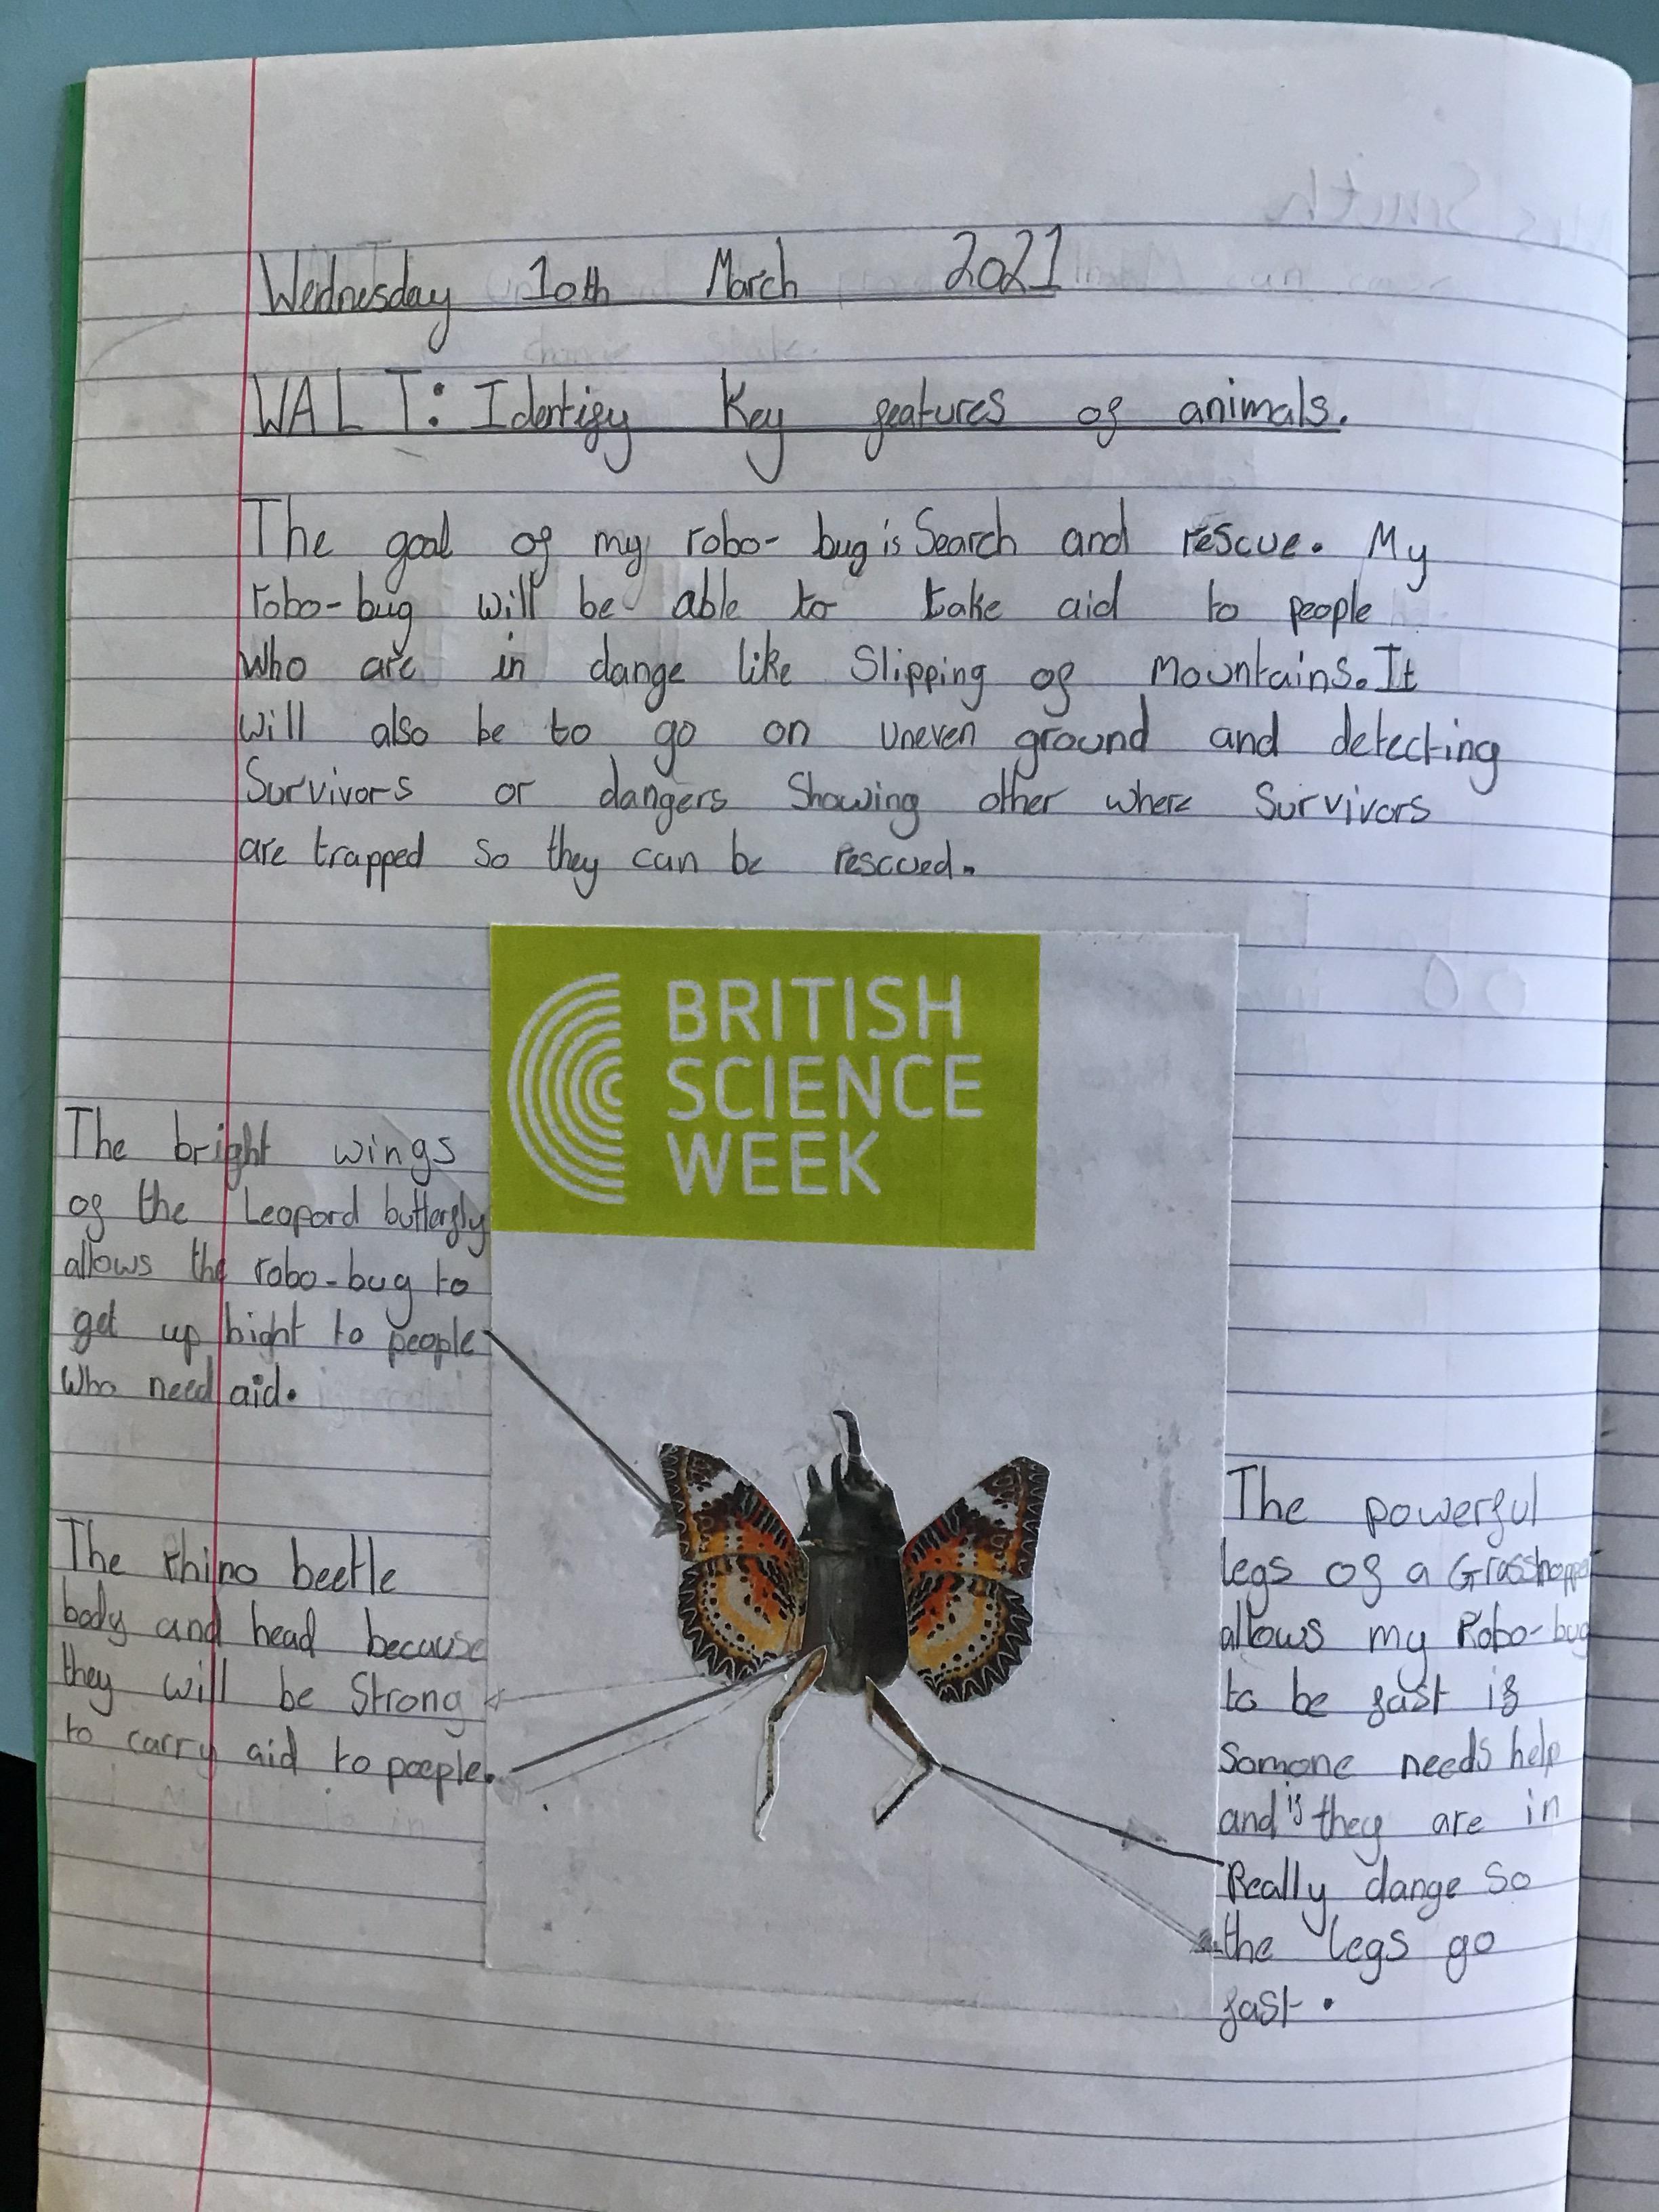 Wednesday 10th March 2021
WALT: Identify Key features of animals.
The goal of my robo-bug is Search and rescue. My
robo-bug will be able to take aid to people
Who are in dange like Slipping of Mountains. It
will also be to go on uneven ground and detecting
Survivors or dangers Showing other where Survivors
are trapped so they can be rescued.
BRITISH
SCIENCE
WEEK
The bright wings
of the Leopard butterfly
allows the robo-bug to
get up hight to people
Who need aid.
The rhino beetle
body and head because
they will be Strong
to carry aid to poeple.
The powerful
legs of a Grasshopper
allows my Robo-bug
to be fast if
Somone needs help
and if they are in
Really dange so
the legs go
fast.